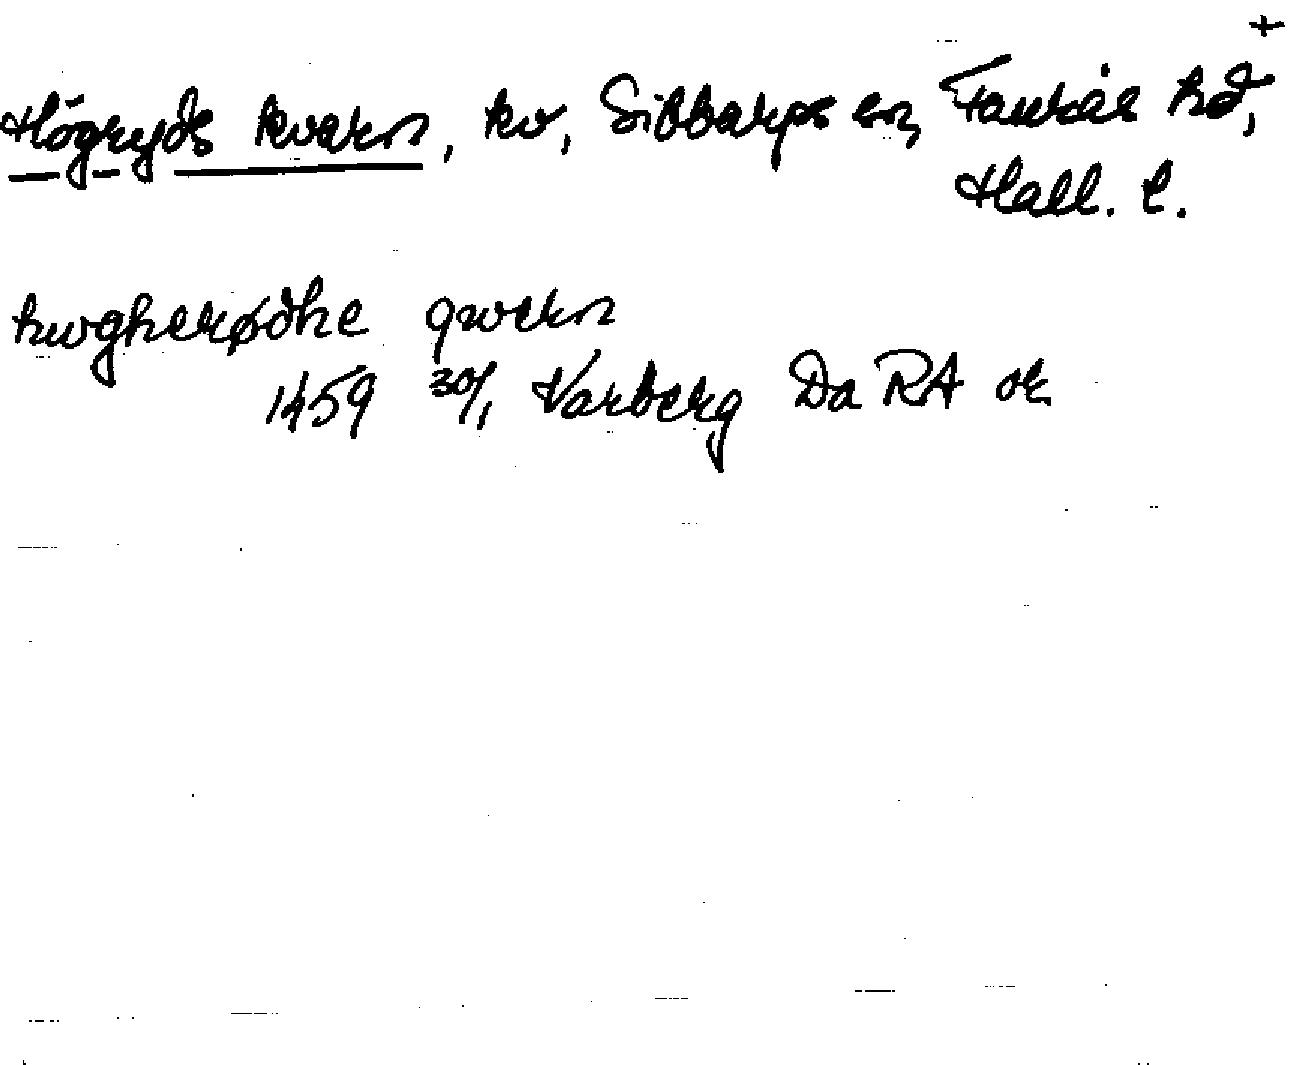 +
Högryds kvarn, kv, Sibbarps sn, Faurås hd,
Hall. l.
hwgherødhe qwern
1459 30/1 Varberg Da RA or